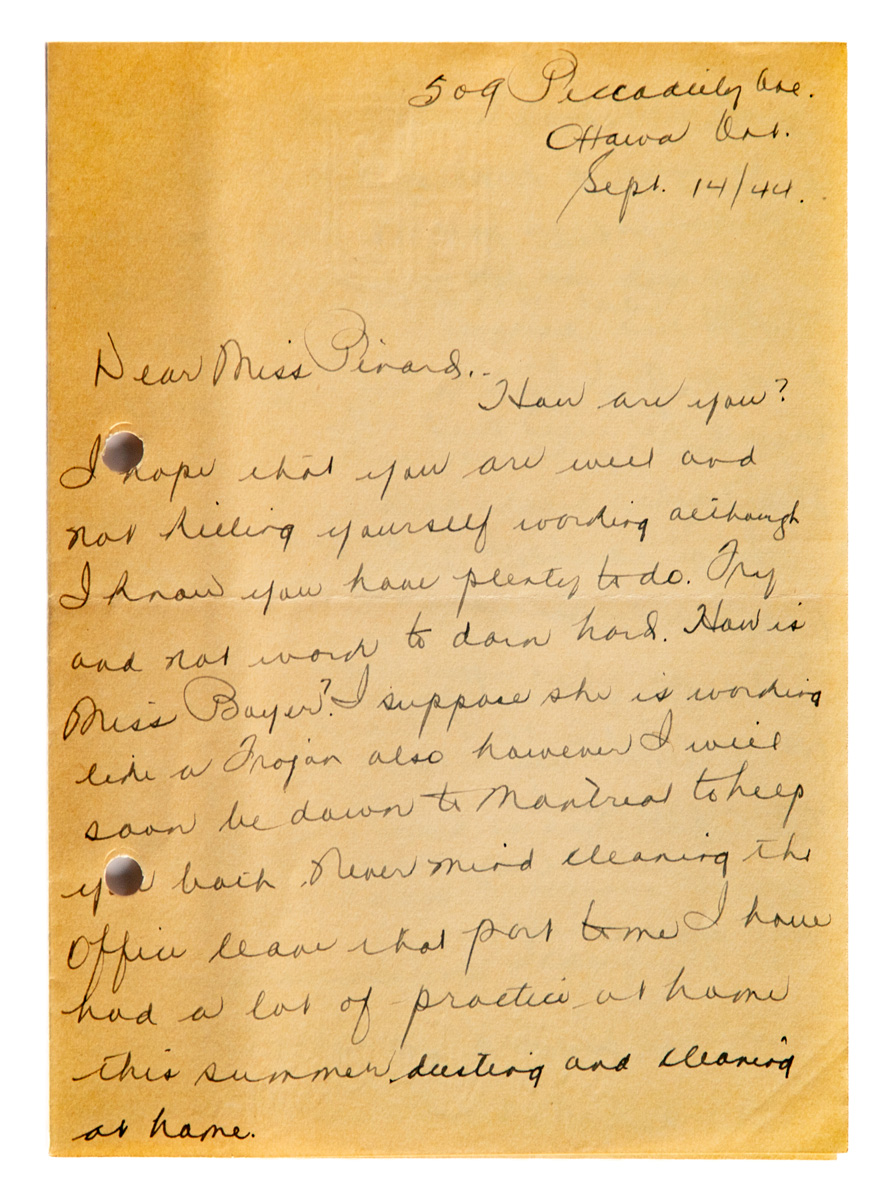 509 Piccadilly Ave.
Ottawa Ont.
Sept. 14/44.
Dear Miss Pinard..
How are you?
I hope that you are well and
not killing yourself working although
I know you have plenty to do. Try
and not work to darn hard. How is
Miss Boyer? I suppose she is working
like a Trojan also however I will
soon be down to Montreal to help
you both. Never mind cleaning the
Office leave that part to me I have
had a lot of practice at home
this summer dusting and cleaning
at home.